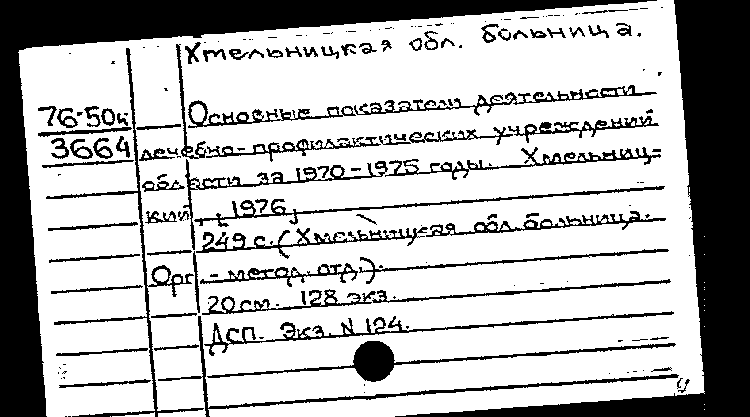 Хмельницкая обл. больница.
76-50ц
3664
Основные показатели деятельности
лечебно-профилактических учреждений
области за 1970-1975 годы. Хмельниц-
кий, [1976]
249 с. (Хмельницкая обл. больница.
Орг.-метод. отд.).
20 см. 128 экз.
ДСП. Экз. N 124.